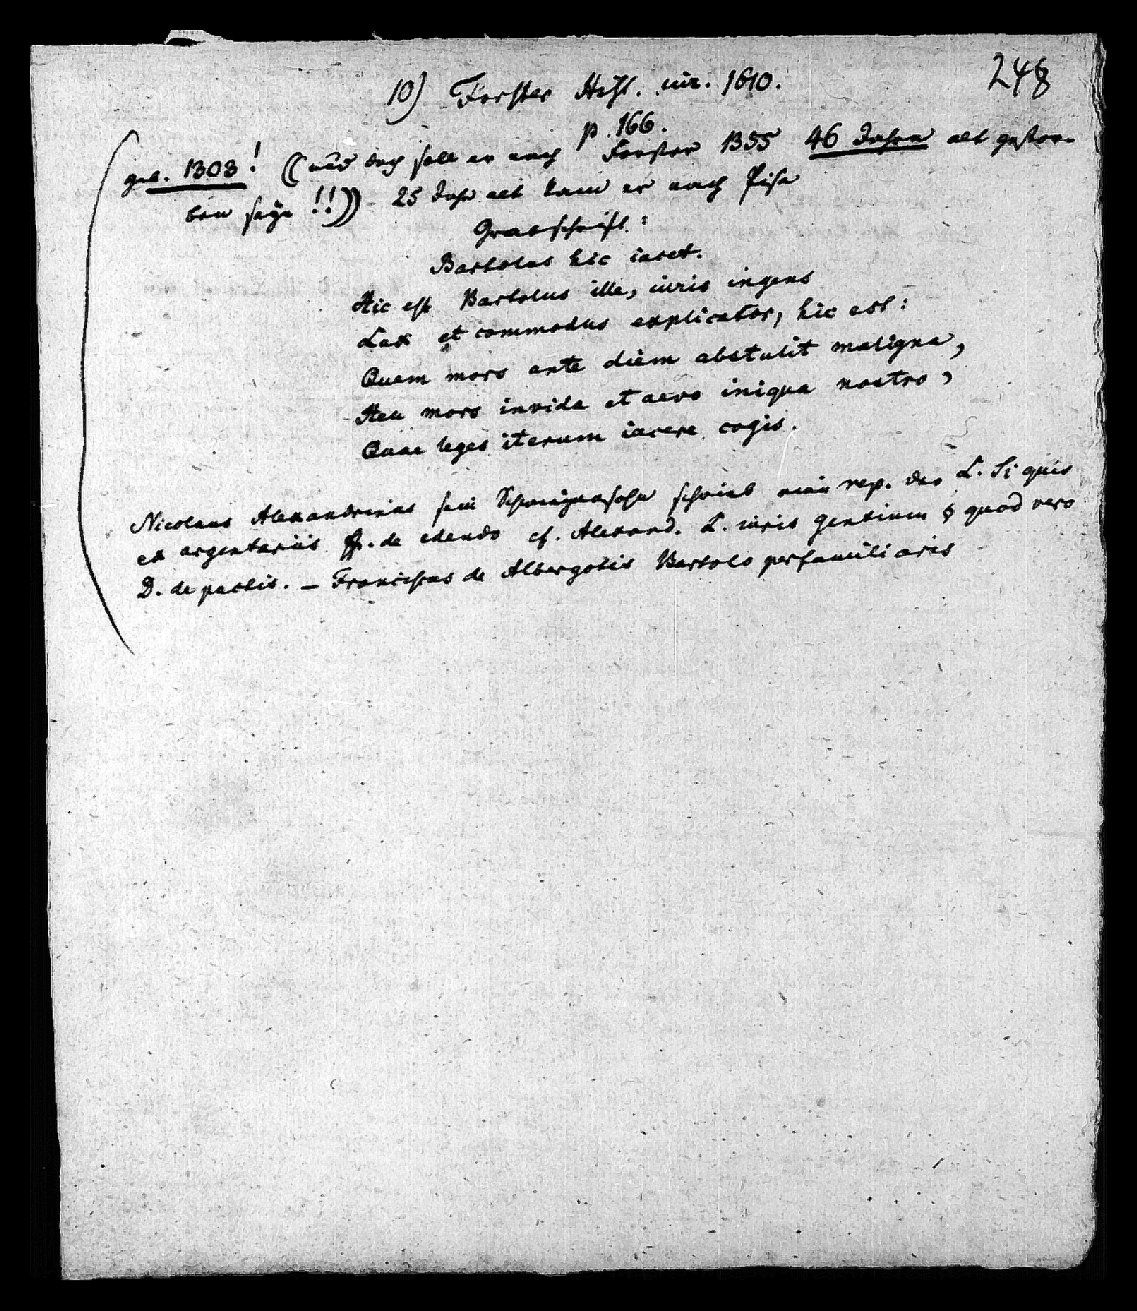 248
10) Forster Hist. iur. 1610.
p. 166.
geb. 1303! ((und doch soll er nach Forster 1355 46 Jahre alt gestor-
ben seyn!!)) 25 Jahr alt kam er nach Pisa
Grabschrift:
Bartolus hic iacet.
Hic est Bartolus ille, iuris ingens
Lux et commodus explicator, hic est:
Quem mors ante diem abstulit maligna,
Heu mors invida et aevo iniqua nostro,
Quae leges iterum iacere cogis.
Nicolaus Alexandrinus sein Schwiegersohn schrieb rep. der L. Si quis
ex argentariis ff. de edendo cf. Alexand. L. iuris gentium § quod vero
D. de pactis. – Franciscus de Albergotis Bartolo perfamiliaris